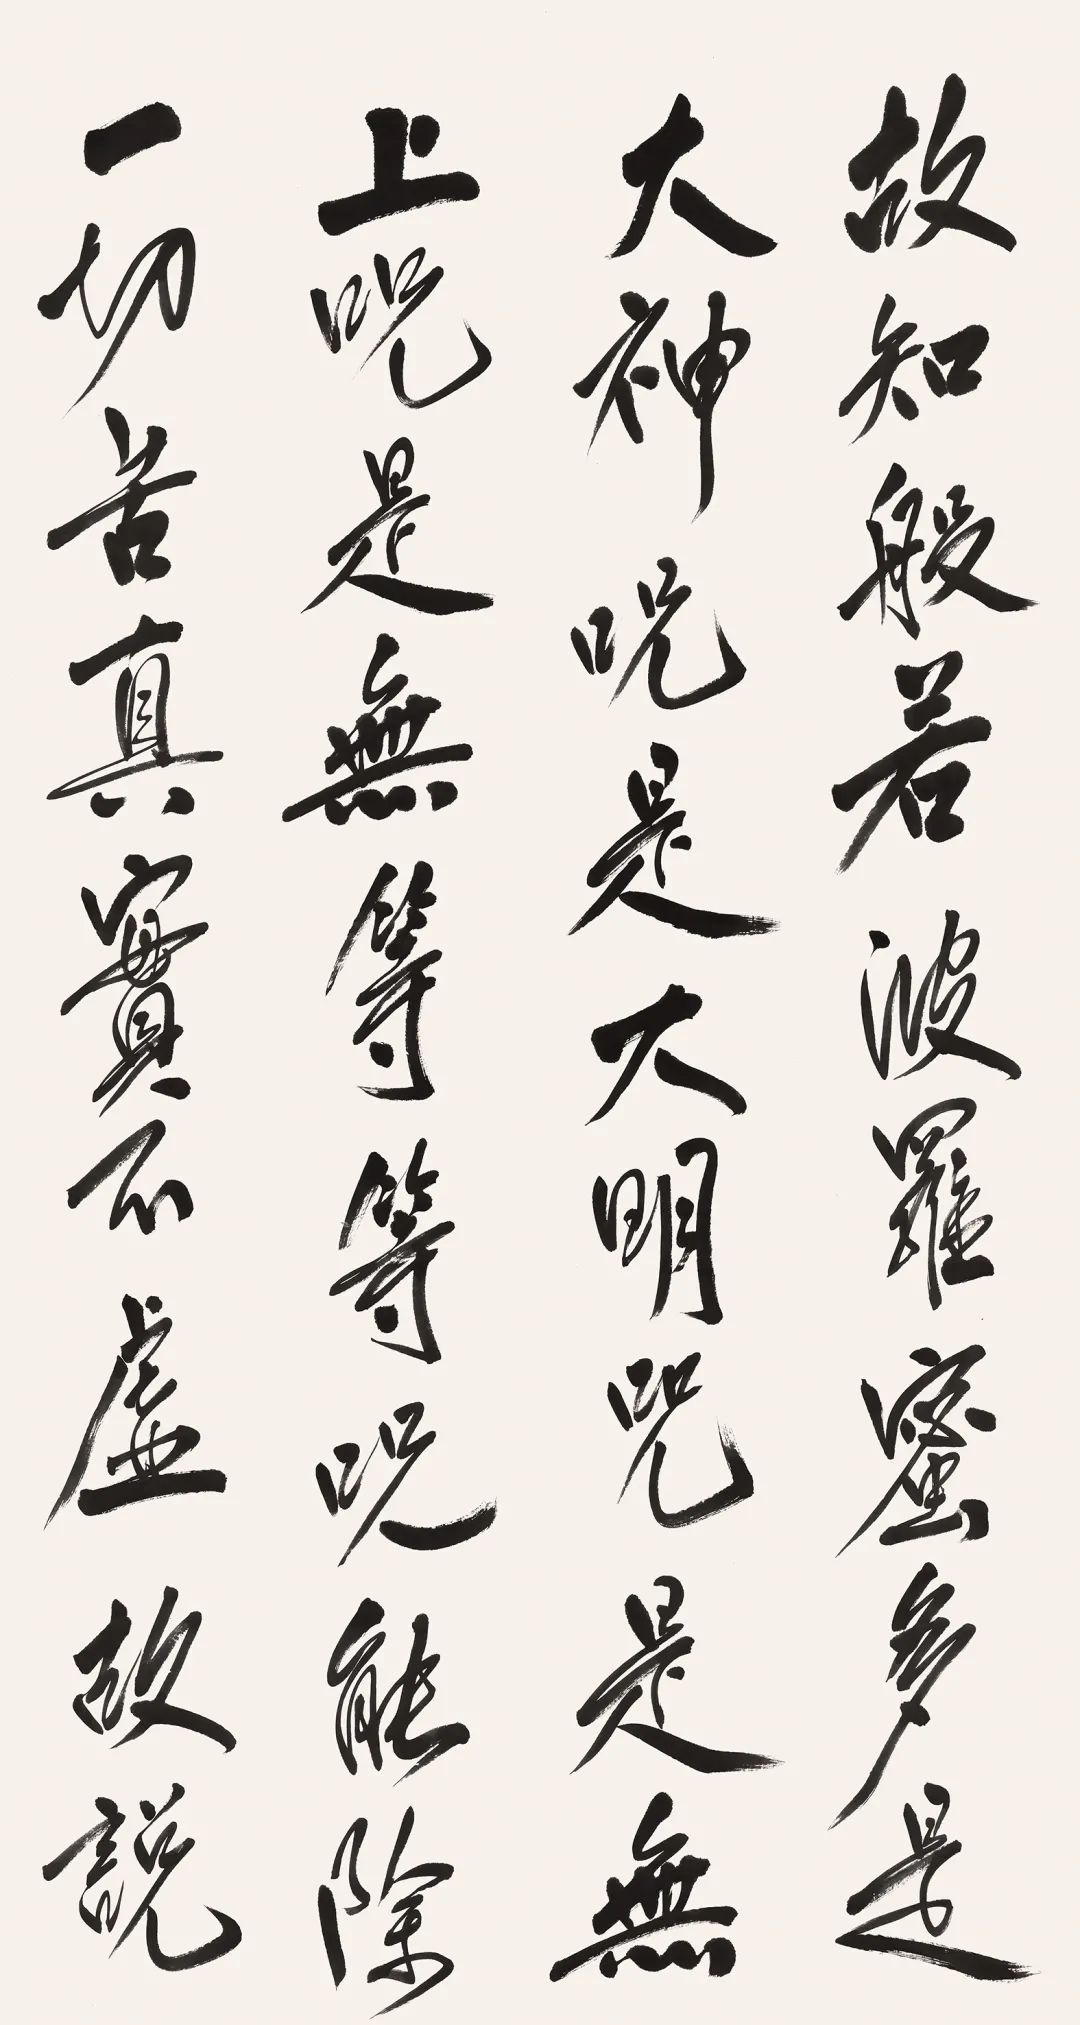 故知般若波羅蜜多是
大神咒是大明咒是無
上咒是無等等咒能除
一切苦真實不虛故說